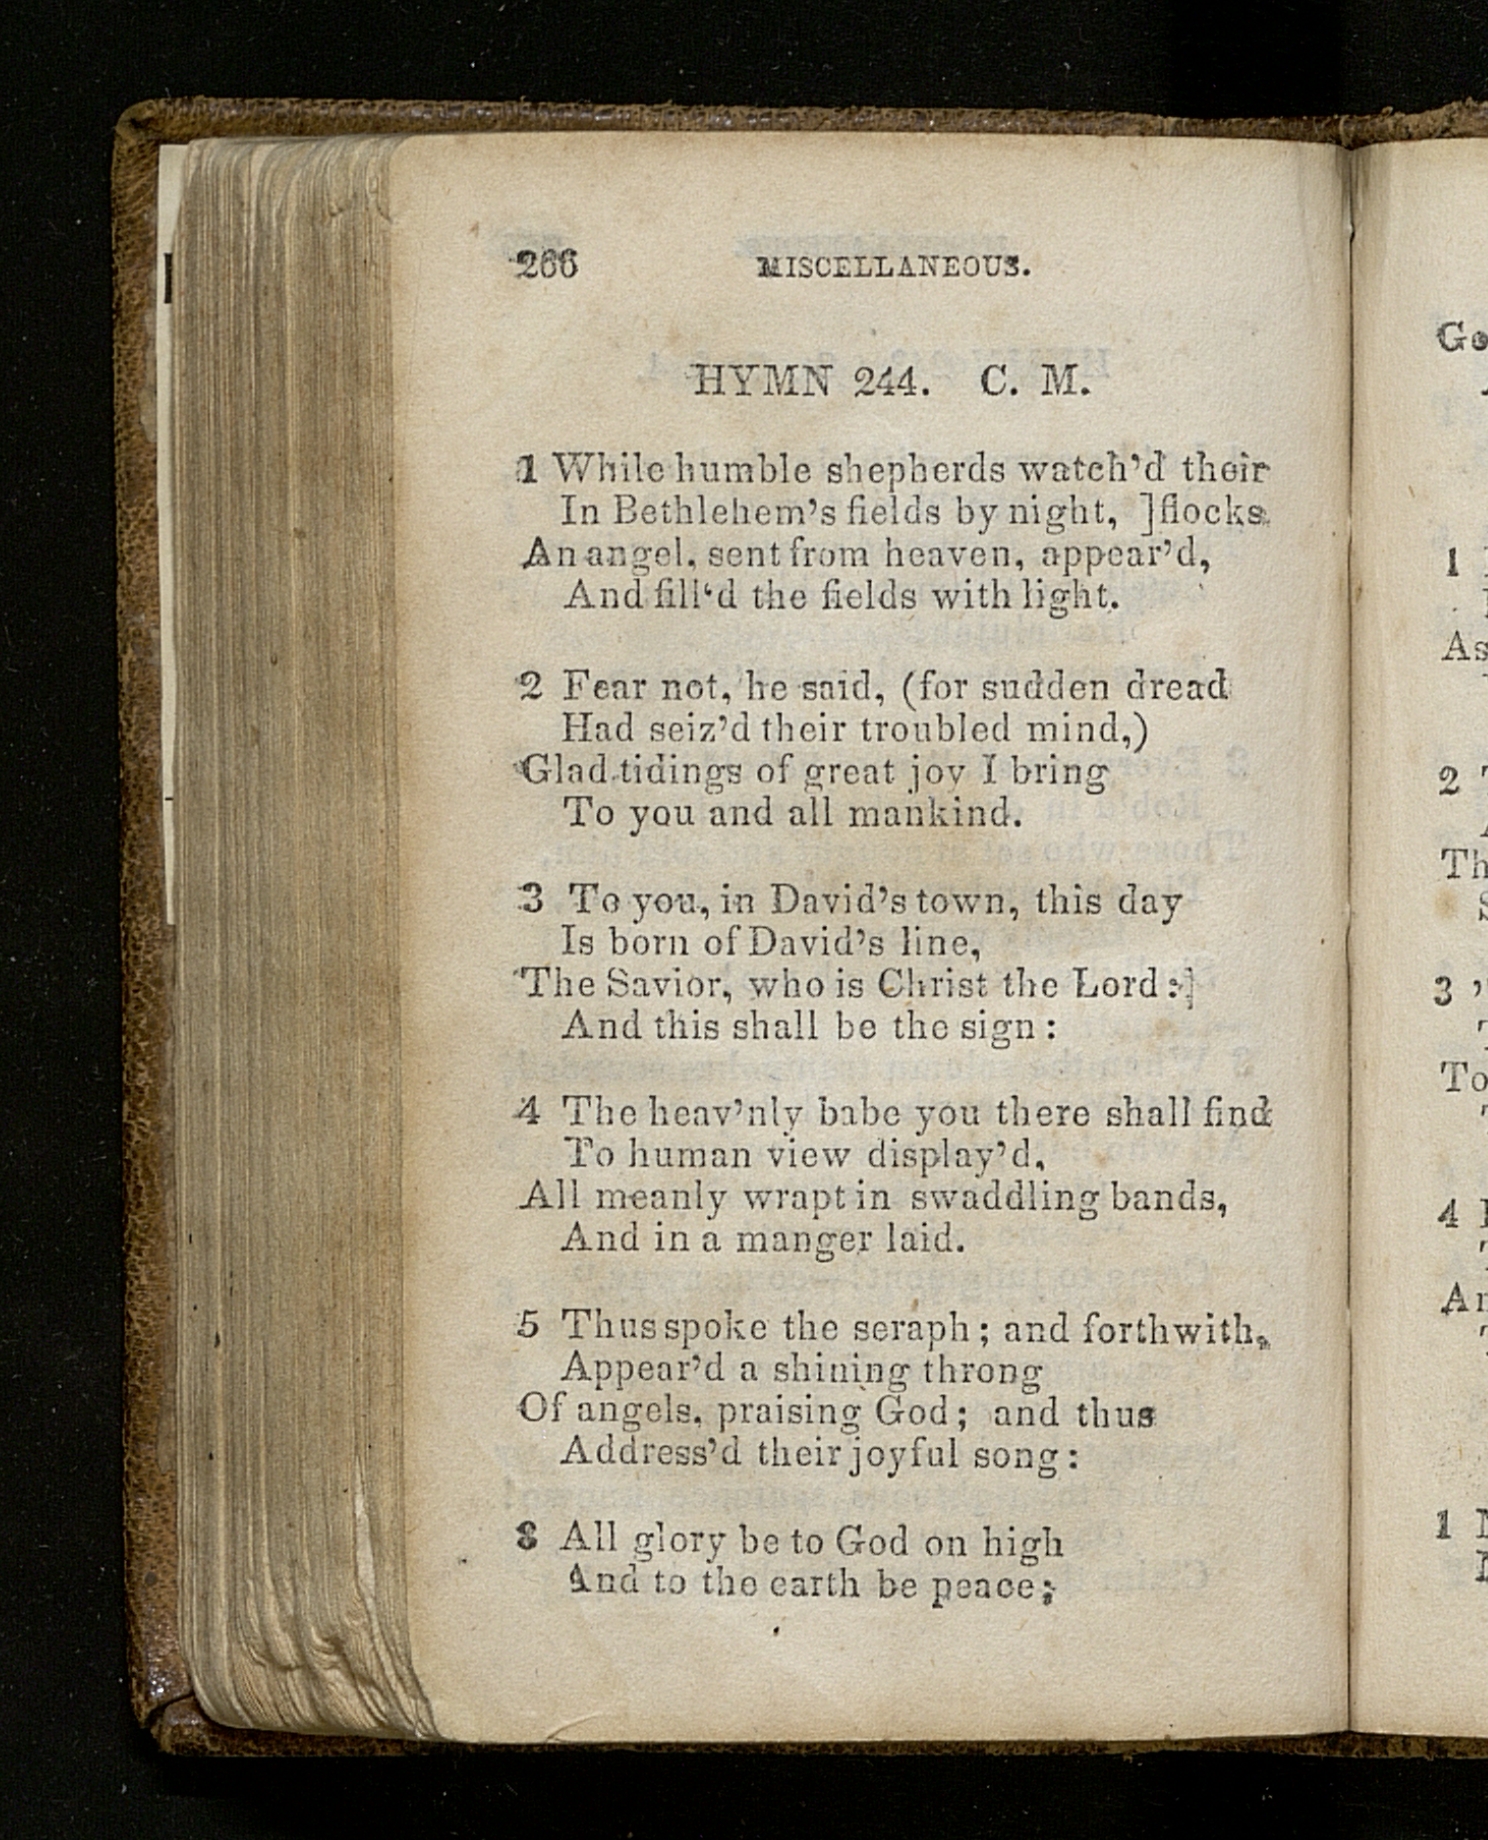 266 MISCELLANEOUS.
HYMN 244. C. M.
1 While humble shepherds watch'd their
In Bethlehem's fields by night, ]flocks
An angel, sent from heaven, appear'd,
And fill‘d the fields with light.
2 Fear not, he said, (for sudden dread
Had seiz'd their troubled mind,)
Glad tidings of great joy I bring
To you and all mankind.
3 To you, in David's town, this day
Is born of David's line,
The Savior, who is Christ the Lord :]
And this shall be the sign :
4 The heav'nly babe you there shall find
To human view display'd,
All meanly wrapt in swaddling bands,
And in a manger laid.
5 Thus spoke the seraph ; and forthwith,
Appear'd a shining throng
Of angels, praising God ; and thus
Address'd their joyful song :
8 All glory be to God on high
And to the earth be peace ;
Go
1
As
2
Th
3
To
4
An
1